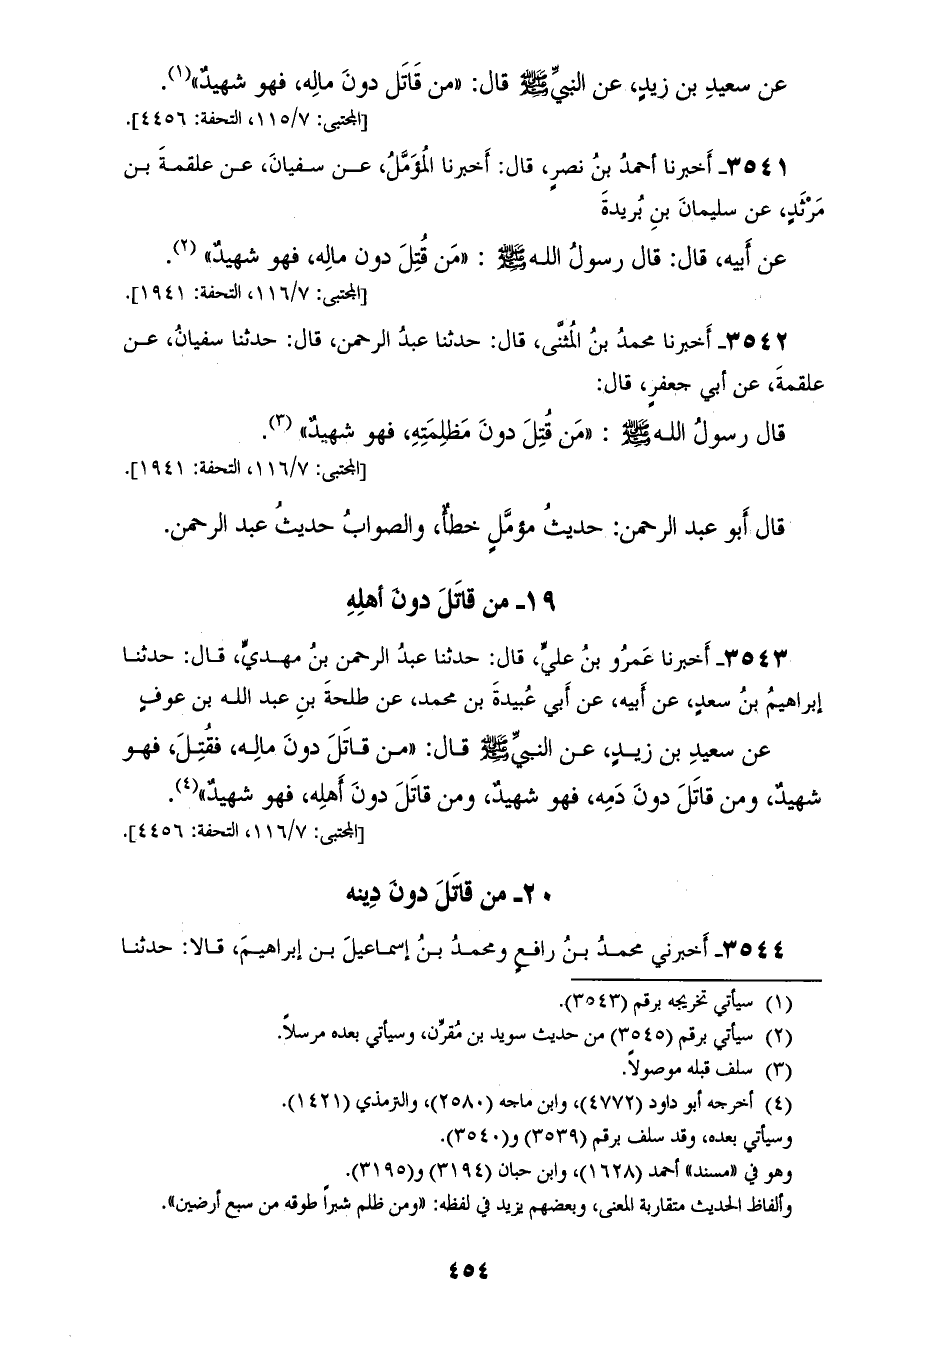 عن سعيدِ بن زيدٍ، عن النبيِّ ﷺ قال: «من قَاتَل دونَ مالِه، فهو شهيدٌ»(١).
[المجتبى: ١١٥/٧، التحفة: ٤٤٥٦].
٣٥٤١ـ أَخبرنا أحمدُ بنُ نصرٍ، قال: أَخبرنا المُؤَمَّلُ، عن سفيانَ، عن علقمةَ بن
مَرْثَدٍ، عن سليمانَ بنِ بُريدةَ
عن أَبيه، قال: قال رسولُ الله ﷺ : «مَن قُتِلَ دون مالِه، فهو شهيدٌ» (٢).
[المجتبى: ١١٦/٧، التحفة: ١٩٤١].
٣٥٤٢ـ أَخبرنا محمدُ بنُ المُثنَّى، قال: حدثنا عبدُ الرحمن، قال: حدثنا سفيانُ، عن
علقمةَ، عن أبي جعفرٍ، قال:
قال رسولُ الله ﷺ : «مَن قُتِلَ دونَ مَظلِمَتِهِ، فهو شهيدٌ» (٣).
[المجتبى: ١١٦/٧، التحفة: ١٩٤١].
قال أَبو عبد الرحمن: حديثُ مؤمَّلٍ خطأٌ، والصوابُ حديثُ عبد الرحمن.
١٩ـ من قاتَلَ دونَ أهلِهِ
٣٥٤٣ـ أَخبرنا عَمرُو بنُ عليٍّ، قال: حدثنا عبدُ الرحمن بنُ مهديٍّ، قال: حدثنا
إبراهيمُ بنُ سعدٍ، عن أَبيه، عن أَبي عُبيدةَ بن محمد، عن طلحةَ بنِ عبد الله بن عوفٍ
عن سعيدِ بن زيدٍ، عن النبيِّ ﷺ قال: «من قاتَلَ دونَ مالِه، فقُتِلَ، فهو
شهيدٌ، ومن قاتَلَ دونَ دَمِه، فهو شهيدٌ، ومن قاتَلَ دونَ أَهلِه، فهو شهيدٌ»(٤).
[المجتبى: ١١٦/٧، التحفة: ٤٤٥٦].
٢٠ـ من قاتَلَ دونَ دِينه
٣٥٤٤ـ أَخبرني محمدُ بنُ رافعٍ ومحمدُ بنُ إسماعيلَ بن إبراهيمَ، قالا: حدثنا
(١) سيأتي تخريجه برقم (٣٥٤٣).
(٢) سيأتي برقم (٣٥٤٥) من حديث سويد بن مُقرِّن، وسيأتي بعده مرسلاً.
(٣) سلف قبله موصولاً.
(٤) أخرجه أبو داود (٤٧٧٢)، وابن ماجه (٢٥٨٠)، والترمذي (١٤٢١).
وسيأتي بعده، وقد سلف برقم (٣٥٣٩) و(٣٥٤٠).
وهو في «مسند» أحمد (١٦٢٨)، وابن حبان (٣١٩٤) و(٣١٩٥).
وألفاظ الحديث متقاربة المعنى، وبعضهم يزيد في لفظه: «ومن ظلم شبراً طوقه من سبع أرضين».
٤٥٤